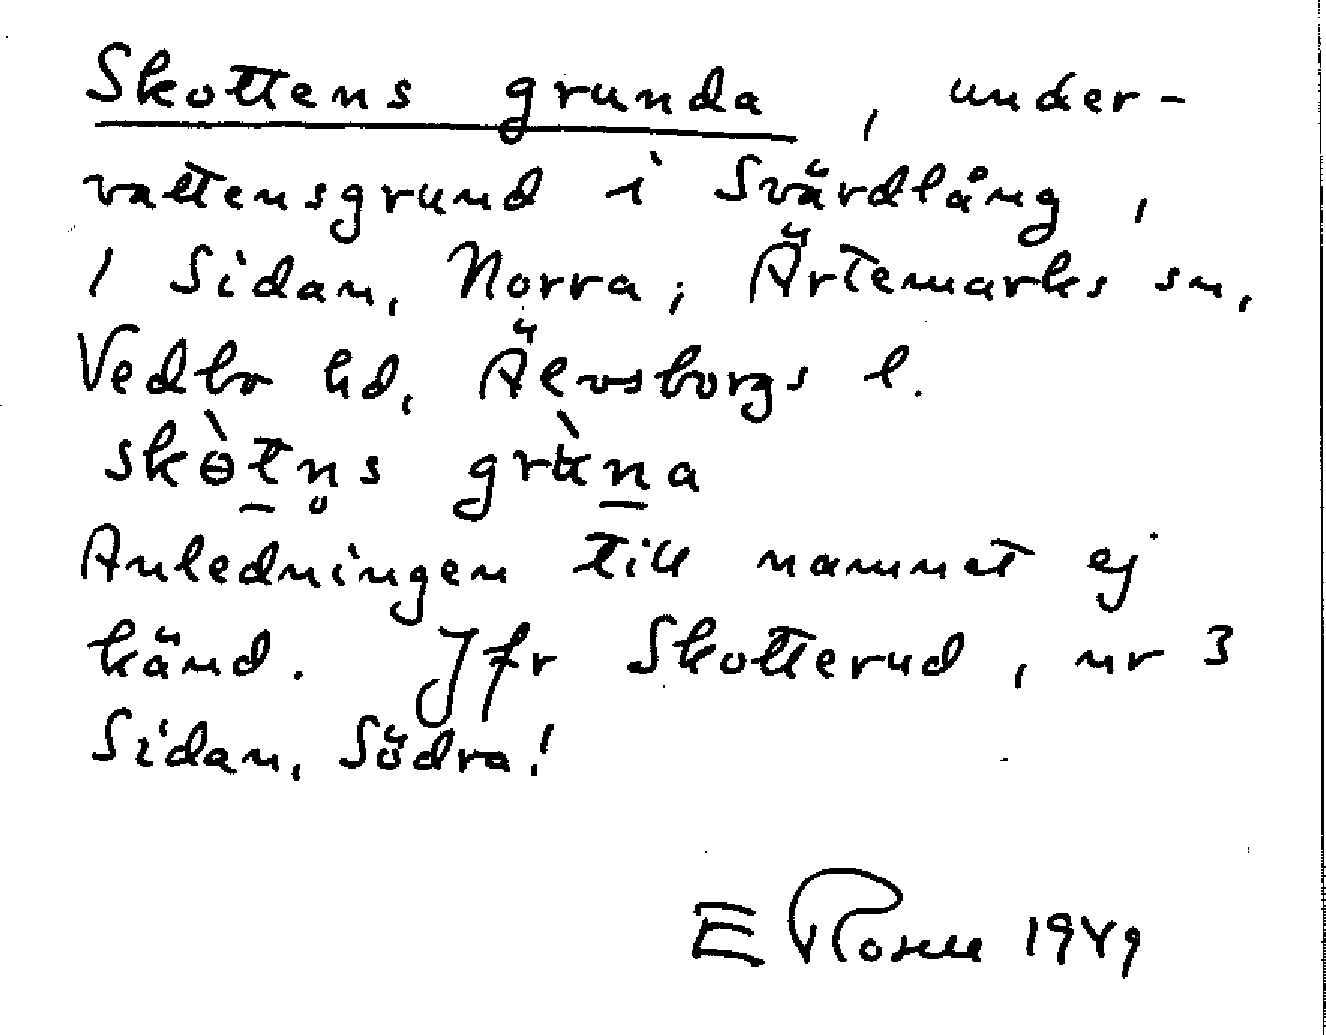 Skottens grunda, under-
vattensgrund i Svärdlång,
1 Sidan, Norra; Ärtemarks sn,
Vedbo hd, Älvsborgs l.
skɵ̀t̲n̥s grʉ̀n̲a
Anledningen till namnet ej
känd. Jfr Skotterud, nr 3
Sidan, Södra!
E Rosell 1949